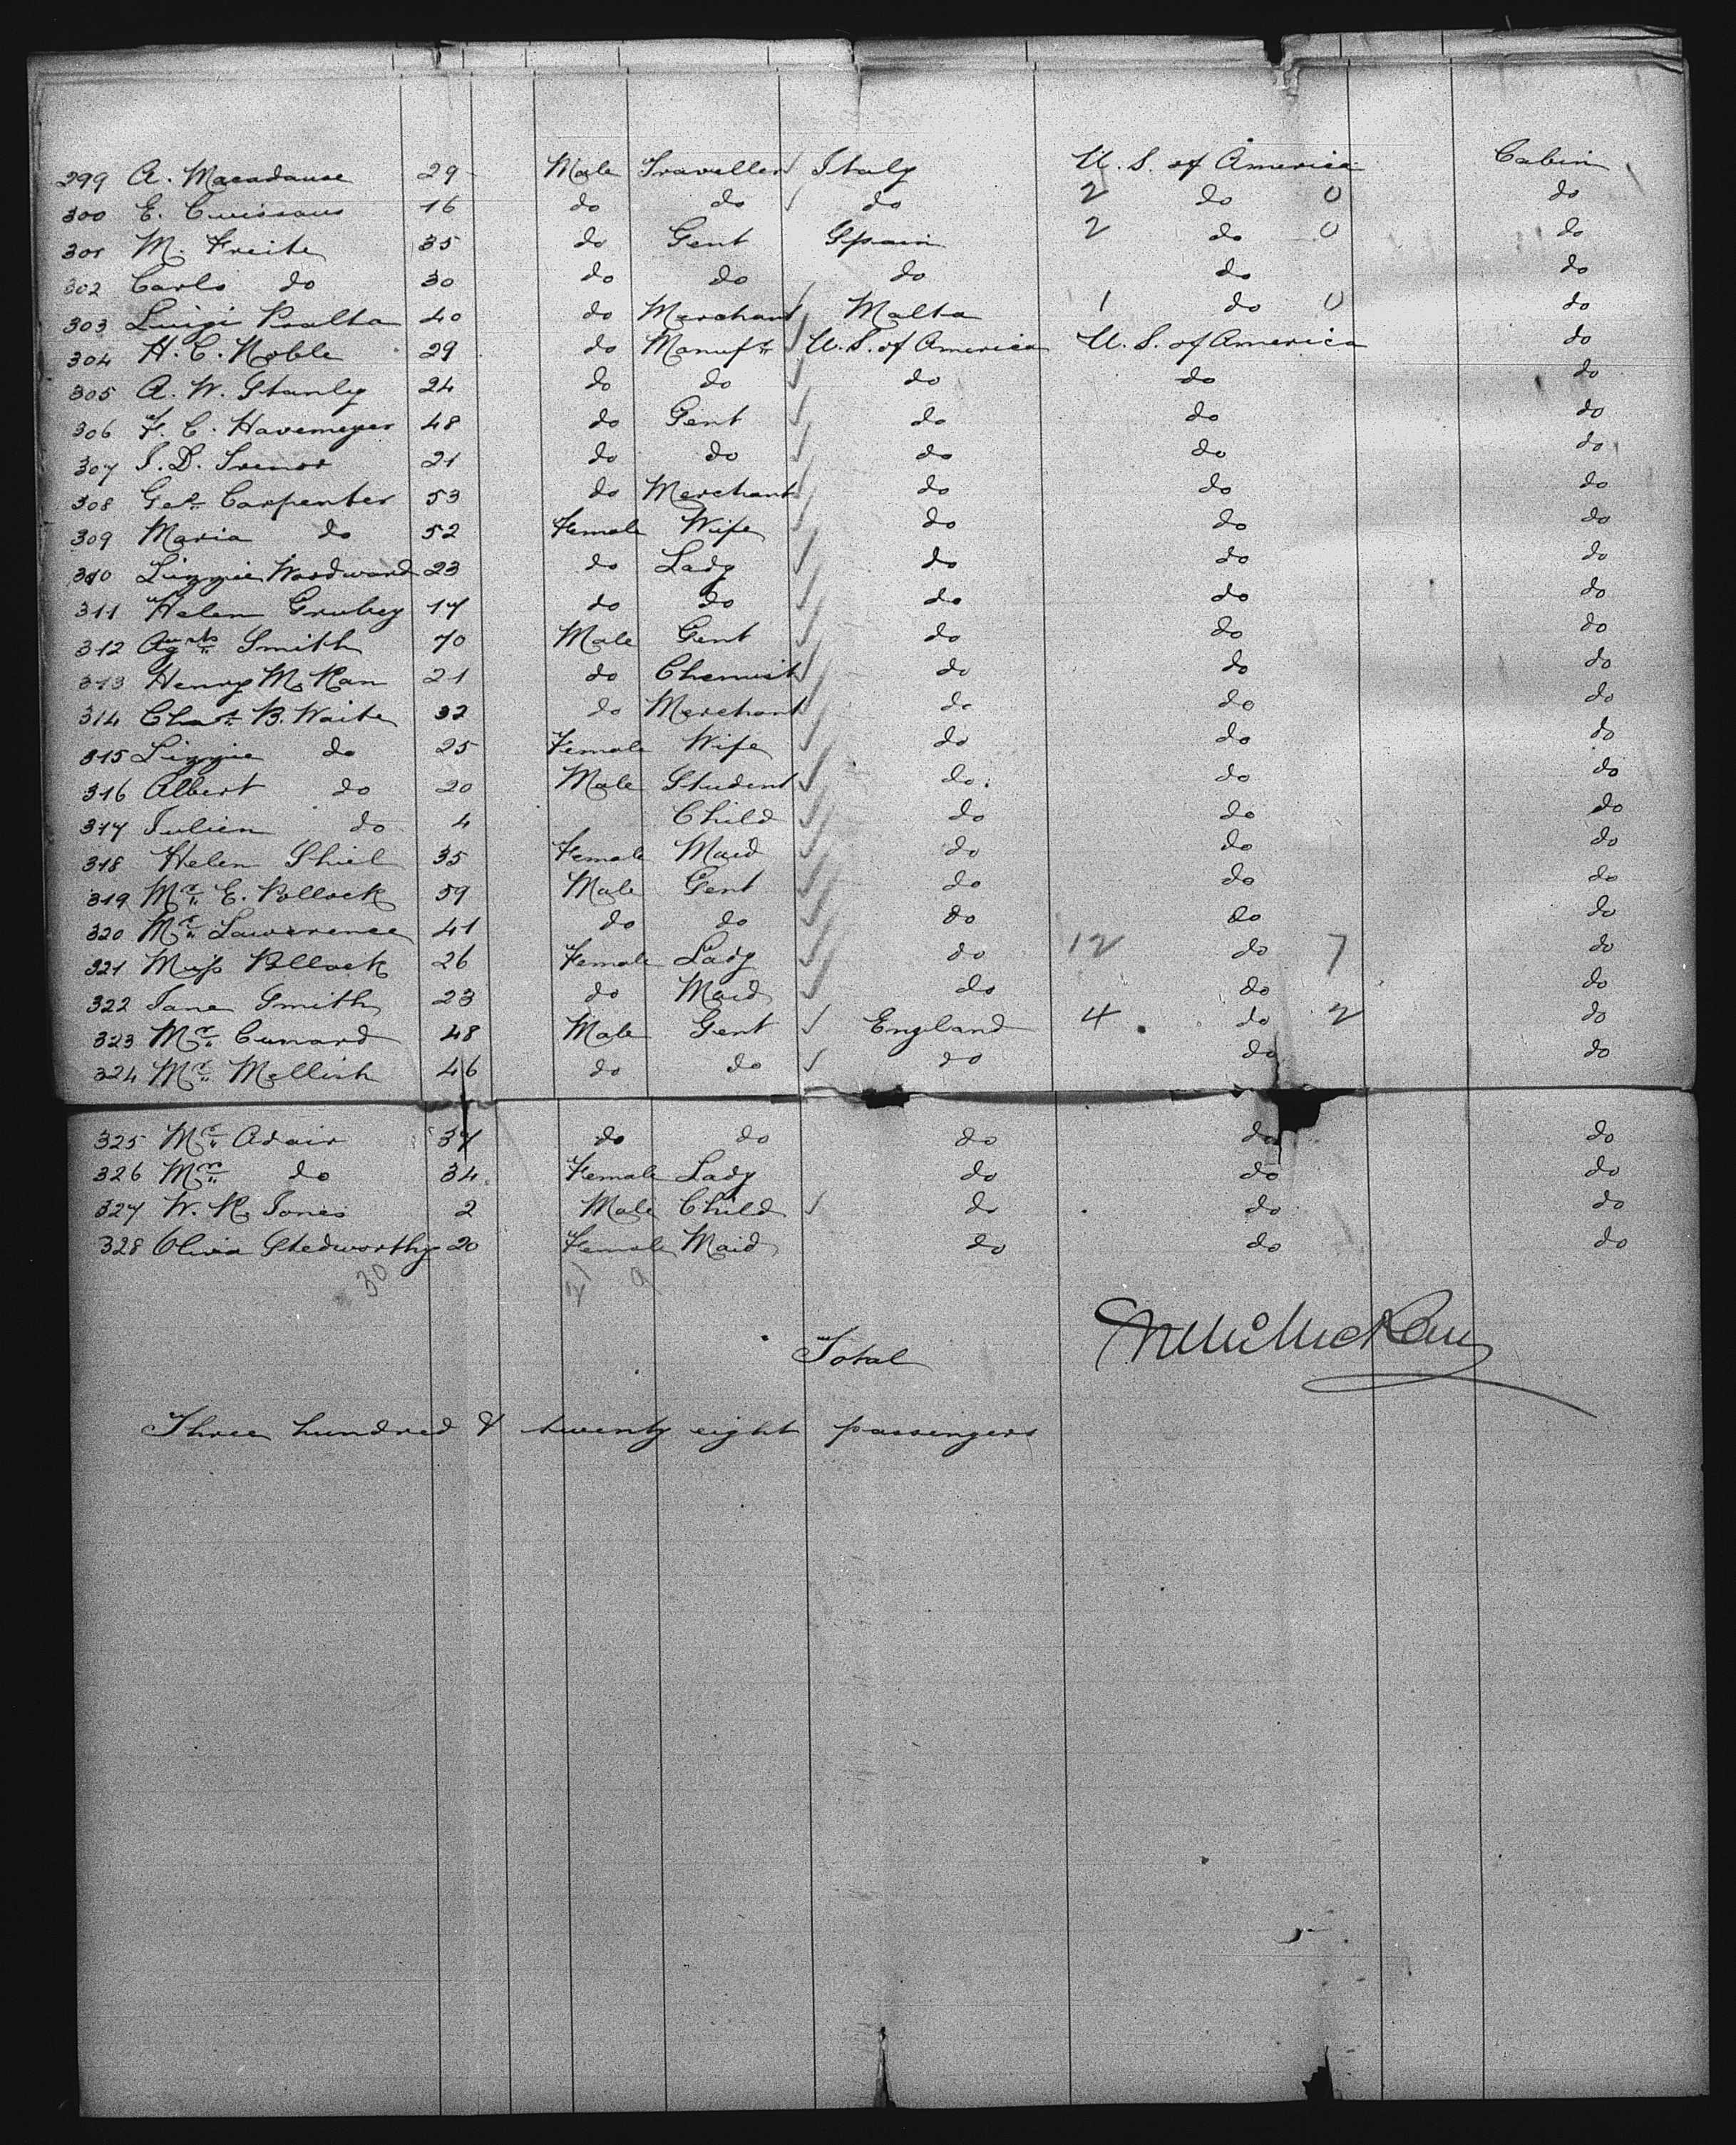 299 A. Macadause 29 Male Traveller Italy U. S. of America Cabin
300 E. Cuissaus 16 do do do 2 do 0 do
301 M. Freite 35 do Gent Spain 2 do 0 do
302 Carlo do 30 do do do do do
303 Luigi Pralta 40 do Merchant Malta 1 do 0 do
304 H. C. Noble 29 do Manufr U. S. of America U. S. of America do
305 A. W. Stanley 24 do do do do do
306 F. C. Havemeyer 48 do Gent do do do
307 J. D. Trenor 21 do do do do do
308 Geo Carpenter 53 do Merchant do do do
309 Maria do 52 Female Wife do do do
310 Lizzie Woodward 23 do Lady do do do
311 Helen Grubey 17 do do do do do
312 Smith 70 Male Gent do do do
313 Henry M. Kan 21 do Chemist do do do
314 Chas B. Waite 32 do Merchant do do do
315 Lizzie do 25 Female Wife do do do
316 Albert do 20 Male Student do do do
317 Julien do 4 Child do do do
318 Helen Shiel 35 Female Maid do do do
319 Mr E. Pollock 59 Male Gent do do do
320 Mr Lawerence 41 do do do do do
321 Miss Pollock 26 Female Lady do 12 do 7 do
322 Jane Smith 23 do Maid do do do
323 Mr Cunard 48 Male Gent England 4 do 2 do
324 Mr Mellish 46 do do do do do
325 Mr Adair 37 do do do do do
326 Mrs do 34 Female Lady do do do
327 W. K. Jones 2 Male Child do do do
328 Olivia Stedworthy 20 Female Maid do do do
30 21 9
Total
Three hundred & twenty eight passengers